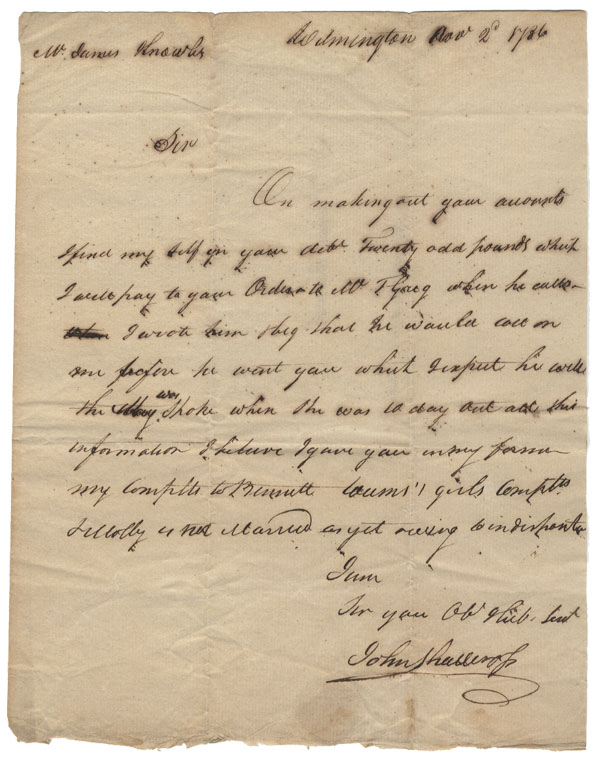 Wilmington Nov 2d 1786
Mr. James Knowles
Sir
On making out your accounts
I find my self in your debt. Twenty odd pounds which
I will pay to your Order to Mr when he calls
I wrote him & beg that he would call on
me before he went your which I expect he will
the was Spoke when She was 10 day out all this
information I believe I gave you in my former
my Complts to Bennett girls Complts
& Molly is not Married as yet oweing to indisposit
I am
Sir your Ob. Hub. Servt
John Shallcross